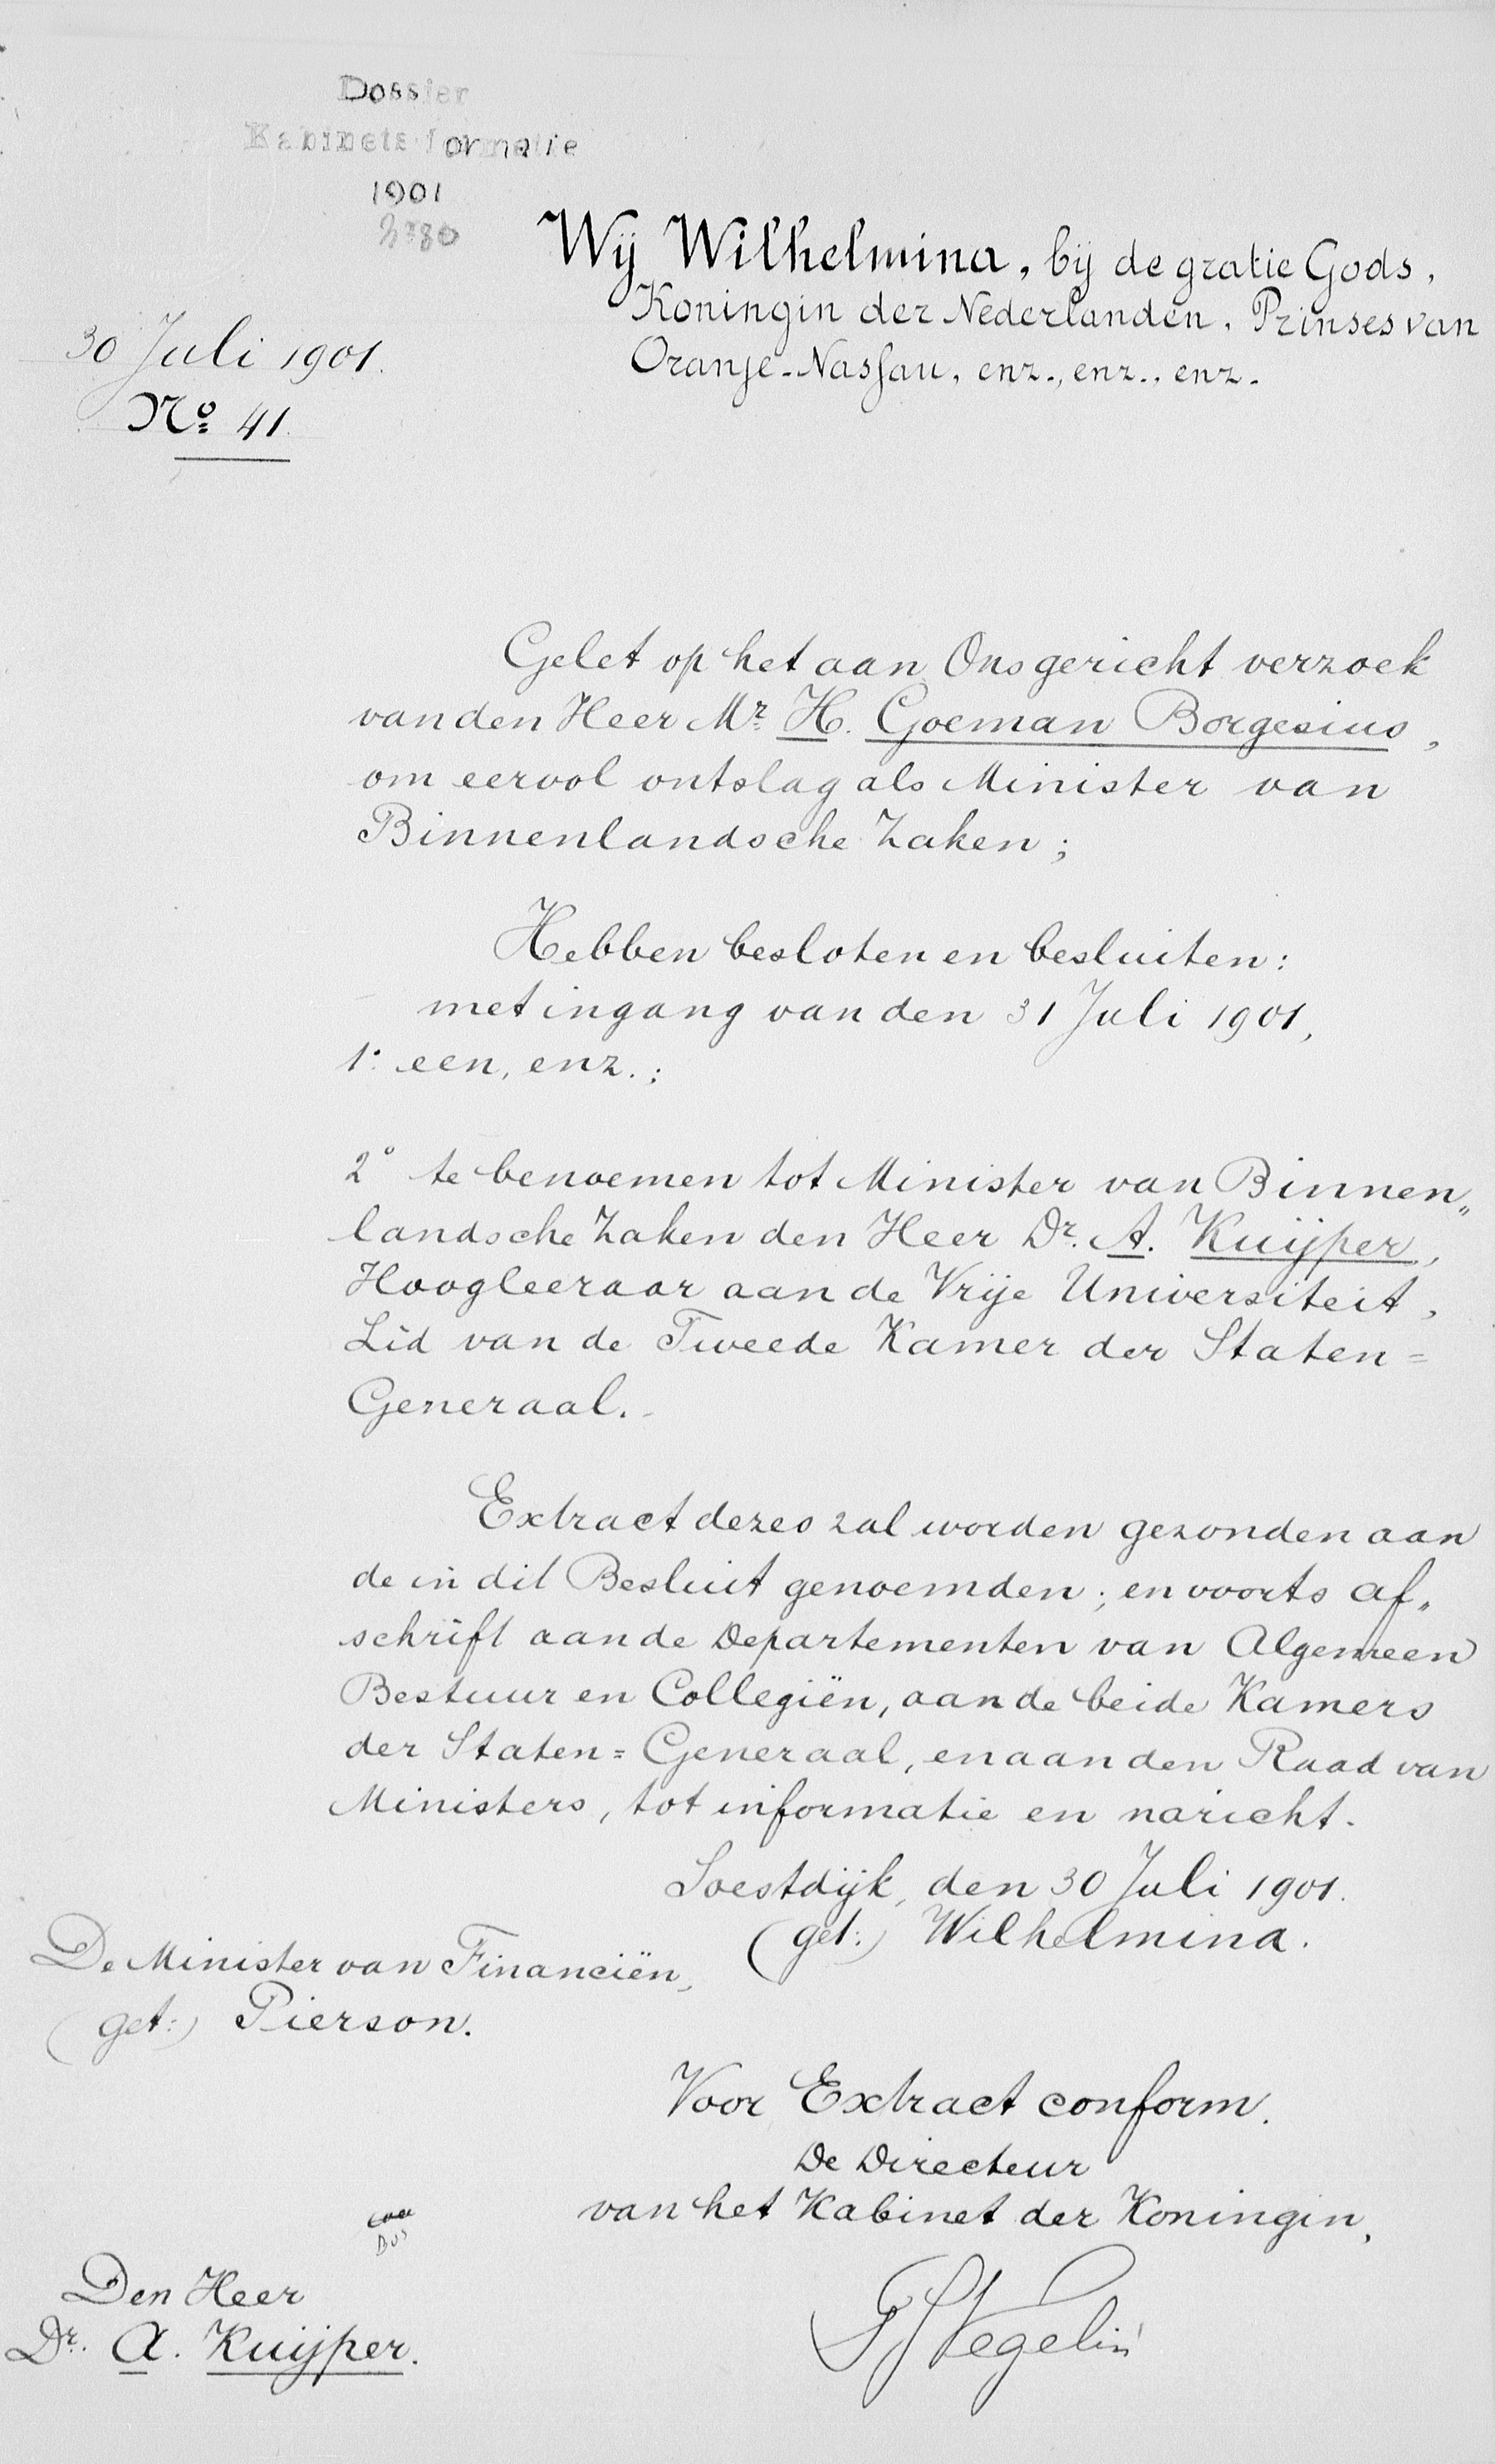 Dossier
Kabinetsformatie
1901
30 Juli 1901.
No 41.
Wij Wilhelmina, bij de gratie Gods,
Koningin der Nederlanden, Prinses van
Oranje-Nassau, enz., enz., enz.
Gelet op het aan Ons gericht verzoek
van den Heer Mr H. Goeman Borgesius,
om eervol ontslag als Minister van
Binnenlandsche Zaken;
Hebben besloten en besluiten:
met ingang van den 31 Juli 1901,
1° een, enz.;
2° te benoemen tot Minister van Binnen„
landsche Zaken den Heer Dr. A. Kuijper,
Hoogleeraar aan de Vrije Universiteit,
Lid van de Tweede Kamer der Staten=
Generaal.
Extract dezes zal worden gezonden aan
de in dit Besluit genoemden; en voorts af„
schrift aan de Departementen van Algemeen
Bestuur en Collegiën, aan de beide Kamers
der Staten=Generaal, en aan den Raad van
Ministers, tot informatie en naricht.
Soestdijk, den 30 Juli 1901.
(get:) Wilhelmina.
De Minister van Financiën,
(get:) Pierson.
Voor Extract conform.
De Directeur
van het Kabinet der Koningin,
Den Heer
Dr. A. Kuijper.